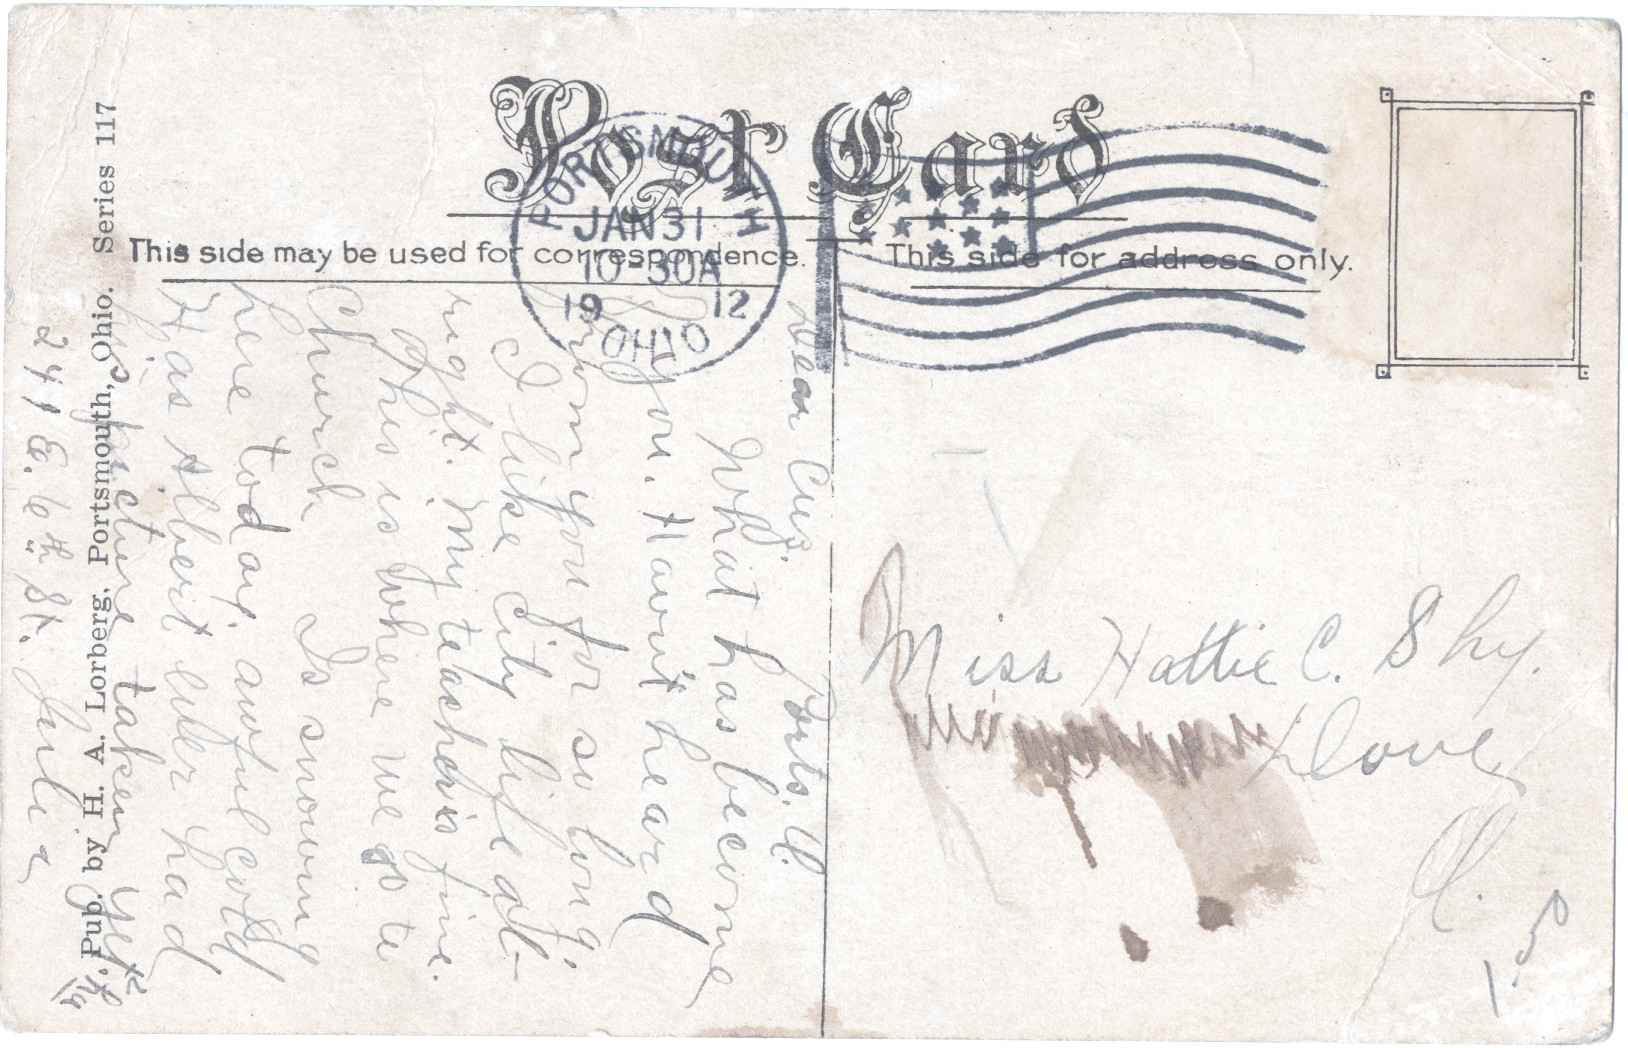 Post Card
PORTSMOUTH
JAN 31
10-30A
1912
OHIO
This side may be used for correspondence.
This side for address only.
Pub. by H. A. Lorberg, Portsmouth, Ohio. Series 117
Ports. O.
Dear Cuz.
What has become
of you. Havn't heard
from you for so long.
I like City life all-
right. My teacher is fine.
This is where we go to
Church Is snowing
here today. awful cold
Has Albert
had
his picture taken yet.
241 E. 6th St. Julia
Miss Hattie C. Shy.
Dove
O.
1.50